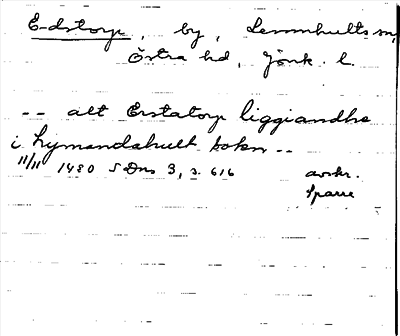 Edstorp, by, Lemmhults sn,
Östra hd, Jönk. l.
-- alt Erstatorp liggiandhe
i hymandahult sokn --
11/11 1480 SDns 3, s. 616 avskr.
Sparre